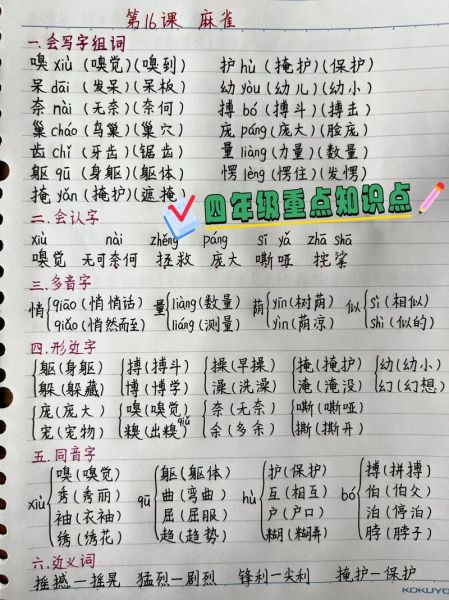 第16课 麻雀
一.会写字组词
嗅xiù(嗅觉)(嗅到) 护hù(掩护)(保护)
呆dāi(发呆)(呆板) 幼yòu(幼儿)(幼小)
奈nài(无奈)(奈何) 搏bó(搏斗)(搏击)
巢cháo(鸟巢)(巢穴) 庞páng(庞大)(脸庞)
齿chǐ(牙齿)(锯齿) 量liàng(力量)(数量)
躯qū(身躯)(躯体) 愣lèng(愣住)(发愣)
掩yǎn(掩护)(遮掩)
四年级重点知识点
二.会认字
xiù nài zhěng páng sī yǎ zhā shā
嗅觉 无可奈何 拯救 庞大 嘶哑 挓挲
三.多音字
悄{qiāo(悄悄话) 量{liàng(数量) 荫{yīn(树荫) 似{sì(相似)
qiǎo(悄然而至) liáng(测量) yìn(荫凉) shì(似的)
四.形近字
{躯(身躯) {搏(搏斗) {操(早操) {掩(掩护) {幼(幼小)
躲(躲藏) 博(博学) 澡(洗澡) 淹(淹没) 幻(幻想)
{庞(庞大) {嗅(嗅觉) {奈(无奈) {嘶(嘶哑)
宠(宠物) 糗(出糗)qiǔ 余(多余) 撕(撕开)
五.同音字
嗅(嗅觉) 躯(躯体) 护(保护) 搏(拼搏)
xiù{秀(秀丽) qū{曲(弯曲) hù{互(相互) bó{伯(伯父)
袖(衣袖) 屈(屈服) 户(户口) 泊(停泊)
绣(绣花) 趋(趋势) 糊(糊弄) 脖(脖子)
六.近义词
摇撼—摇晃 猛烈—剧烈 锋利—尖利 掩护—保护
KOKUYO